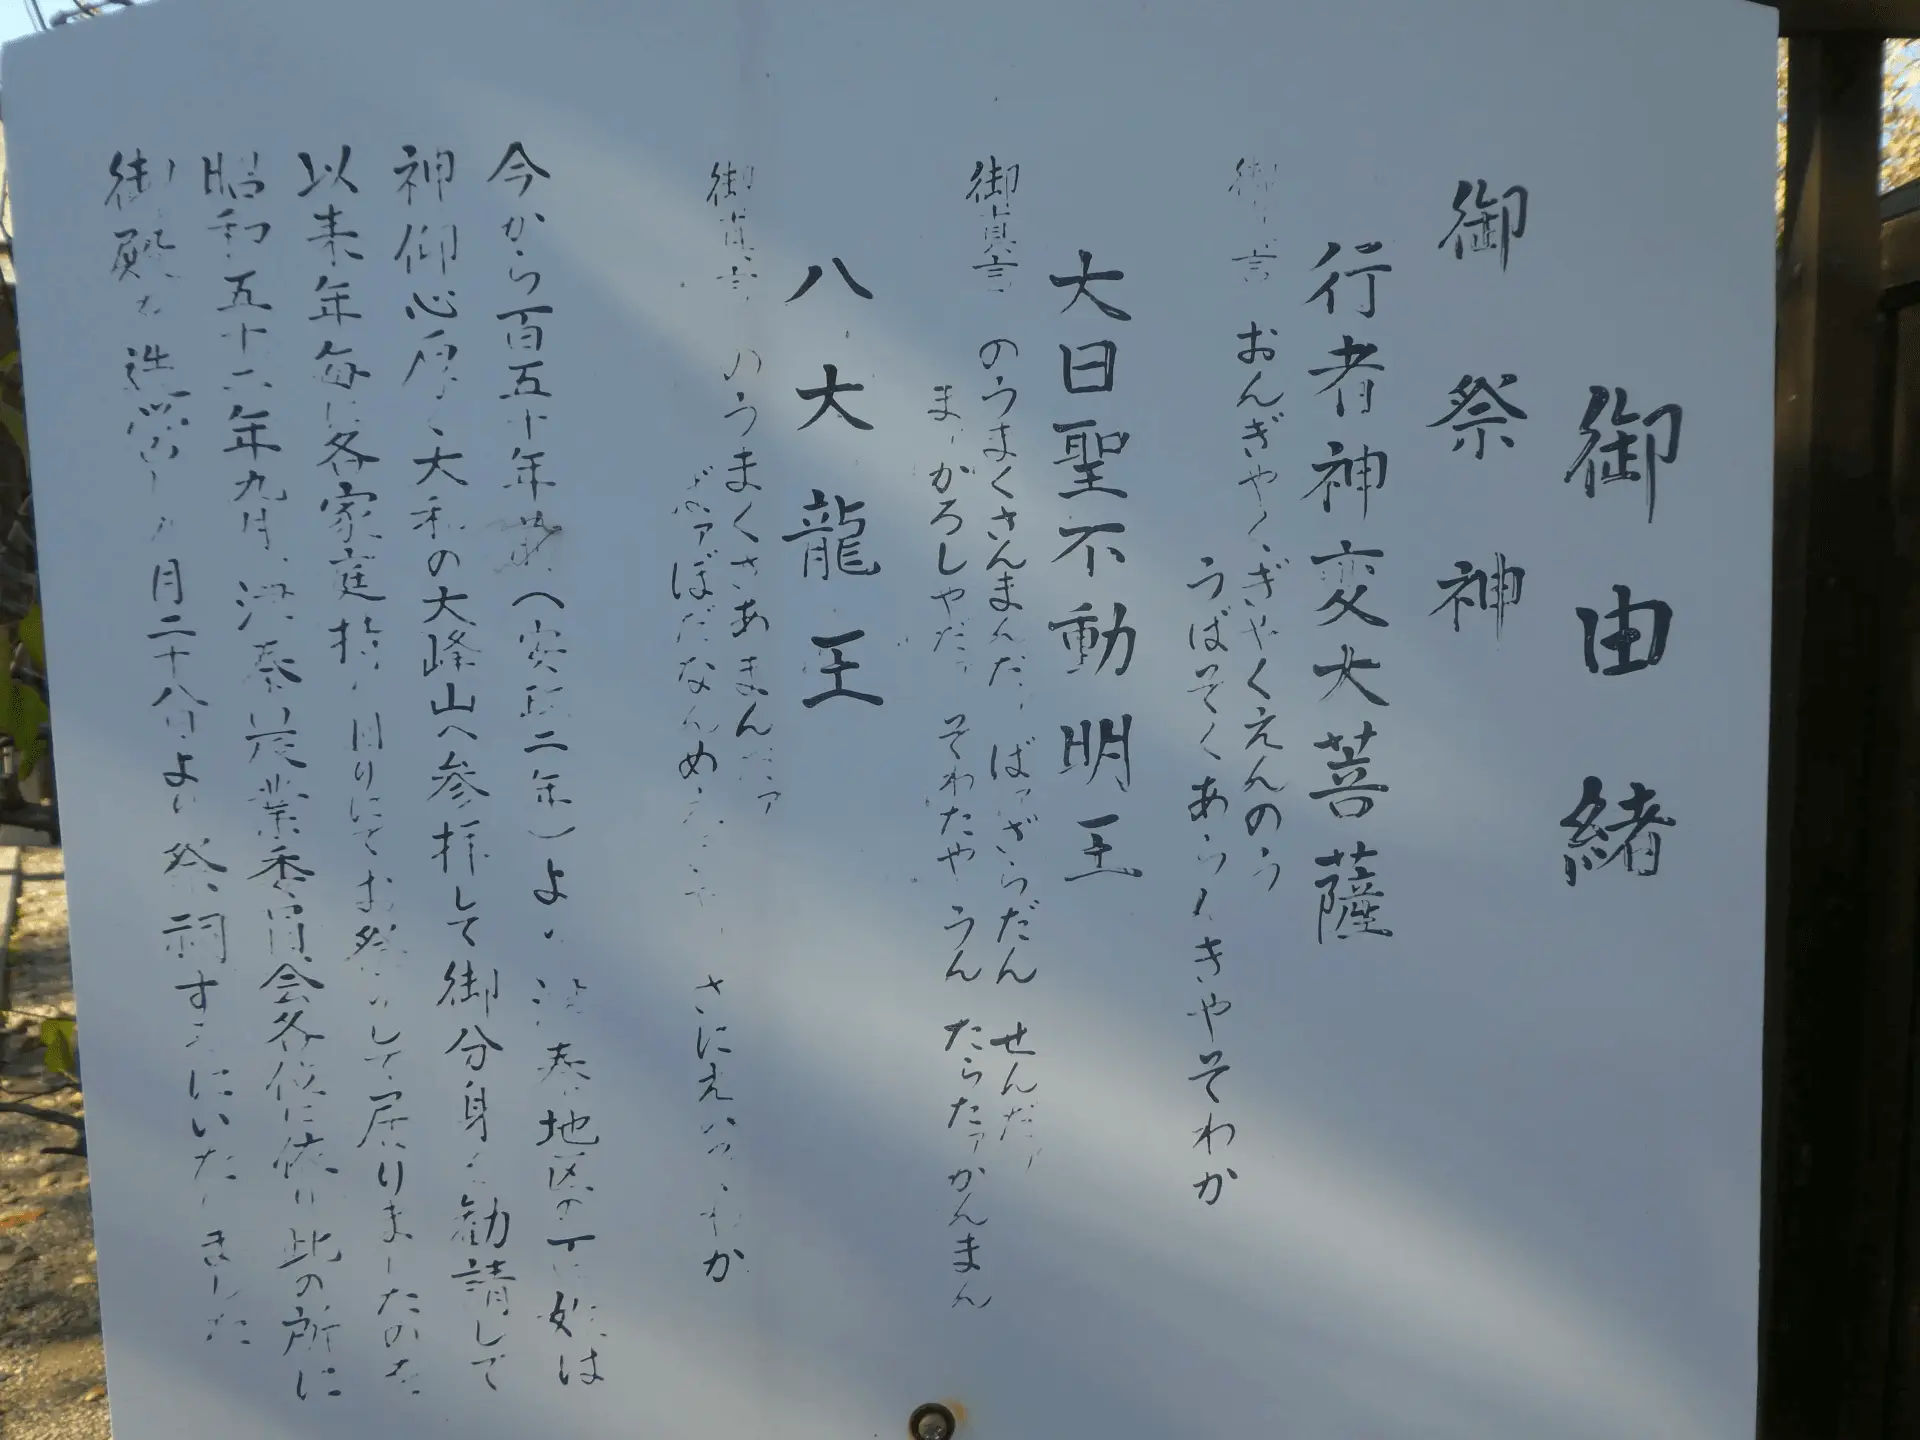 御由緒
御祭神
行者神変大菩薩
御 言 おんぎやくぎやくえんのう
うばそくあらんきやそわか
大日聖不動明王
御真言 のうまくさんまんだァ ばァざらだん せんだァ
まーかろしやだァ そわたや うん たらたァかんまん
八大龍王
御真言 のうまくさあまんだァ
ぼだなんめ さにえ か
今から百五十年 (安政二年)より 泰地区の 始は
神仰心厚く大和の大峰山へ参拝して御分身を勧請して
以来年毎に各家庭 廻りにてお祭りして居りましたのを
昭和五十六年九月 泰農業委員会各位に依り此の所に
御殿を造営し 月二十八日より祭祠するにいたりました